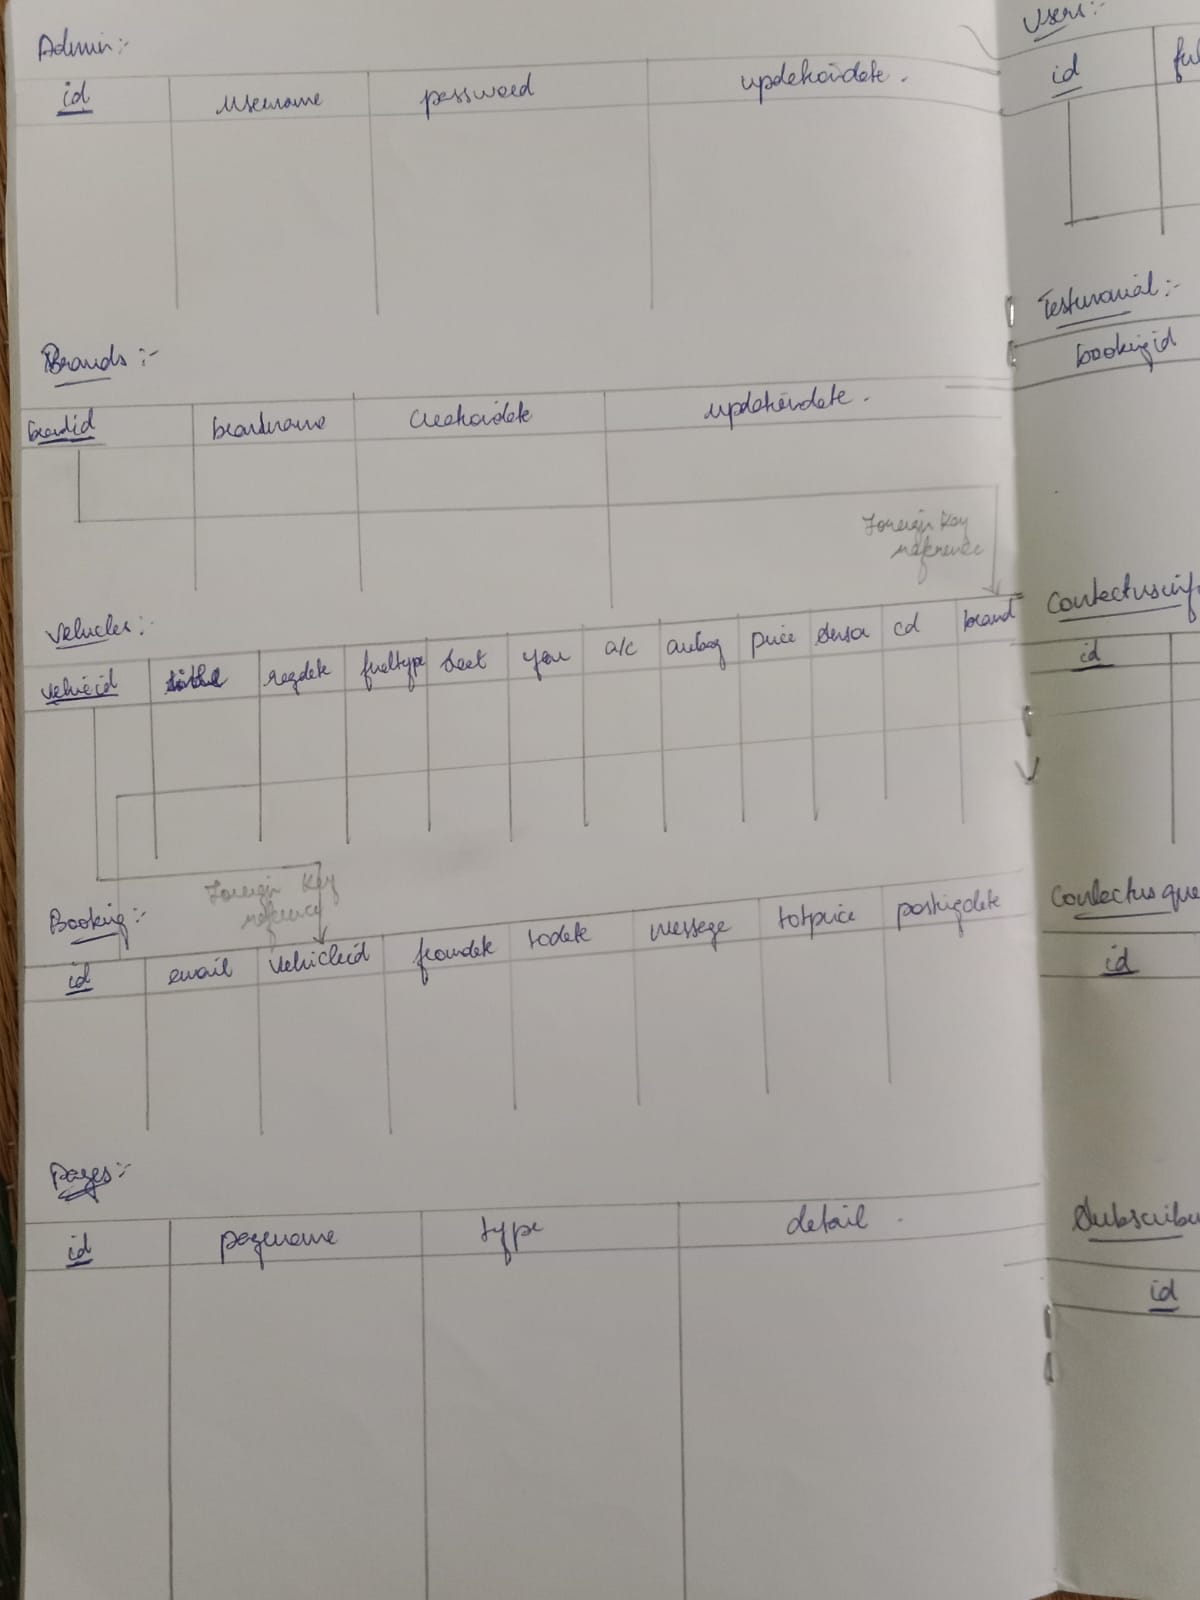 Admin:-
id username password updationdate.
Brands:-
brandid brandname creationdate updationdate.
Foreign Key
reference
Vehicles:-
vehicid title regdate fueltype seat year a/c airbag price sensor cd brand
Foreign Key
reference
Booking:-
id email vehicleid fromdate todate message totprice postingdate
Pages:-
id pagename type detail
Users:-
id fu
Testimonial:-
bookingid
Contactusinf
id
Contactusque
id
Subscribe
id